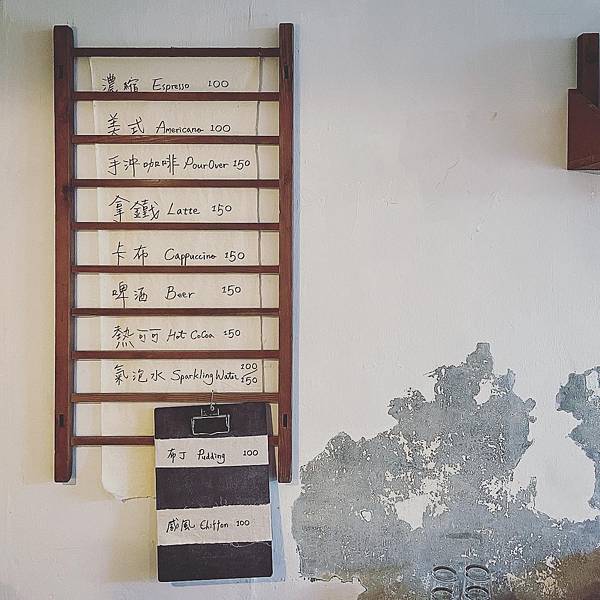 濃縮 Espresso 100
美式 Americano 100
手沖咖啡 PourOver 150
拿鐵 Latte 150
卡布 Cappuccino 150
啤酒 Beer 150
熱可可 Hot CoCoa 150
氣泡水 Sparkling Water 100
150
布丁 Pudding 100
戚風 Chiffon 100